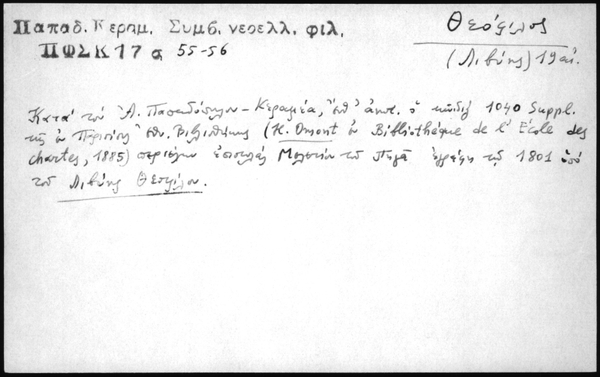 Παπαδ. Κεραμ. Συμβ. νεοελλ. φιλ.
ΠΦΣΚ 17 σ. 55-56
Θεόφιλος
(Λιβύης) 19 αἰ.
Κατὰ τὸν Ἀ. Παπαδόπουλον-Κεραμέα, ὁ κῶδιξ 1040 Suppl.
τῆς ἐν Παρισίοις Ἐθν. Βιβλιοθήκης (H. Omont ἐν Bibliothéque de l' École des
chartes, 1885) περιέχων ἐπιστολὰς Μελετίου τοῦ Πηγᾶ ἐγράφη τῷ 1801 ὑπὸ
τοῦ Λιβύης Θεοφίλου.